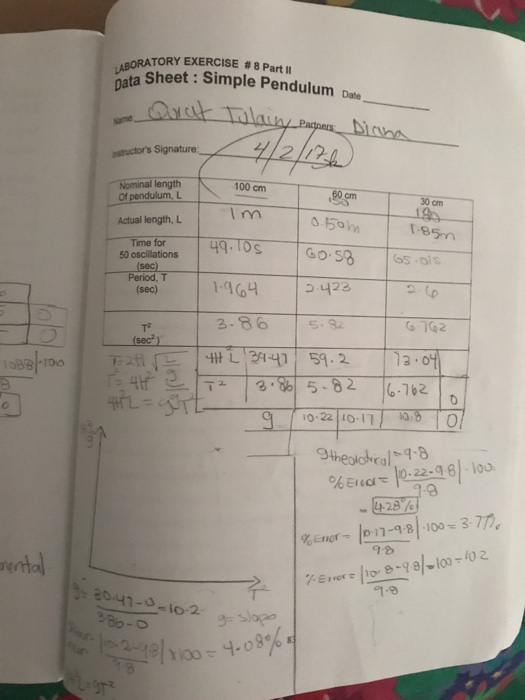 LABORATORY EXERCISE # 8 Part II
Data Sheet : Simple Pendulum Date
Name: Qrat Tulain Partners: Diana
Instructor's Signature: 4/2/17
Nominal length Of pendulum, L 100 cm 60 cm 150 30 cm 180
Actual length, L 1m 0.150m 1.85m
Time for 50 oscillations (sec) 49.10s 60.58 65.01s
Period, T (sec) 1.964 2.423 2.6
T² (sec²) 3.86 5.82 6.762
4π²L 39.47 59.2 73.04
T² 3.86 5.82 6.762 0
g 10.22 10.17 10.8 0
4π²L = gT²
g theoretical = 9.8
% Error = |10.22-9.8| · 100
9.8
= 4.28%
% Error = |10.17-9.8| · 100 = 3.77%
9.8
% Error = |10.8-9.8| · 100 = 102
9.8
T²
g = 39.47-0 = 10.2
386-0
g = slope
|10.2-9.8| x100 = 4.08%
9.8
4π²L = gT²
mental